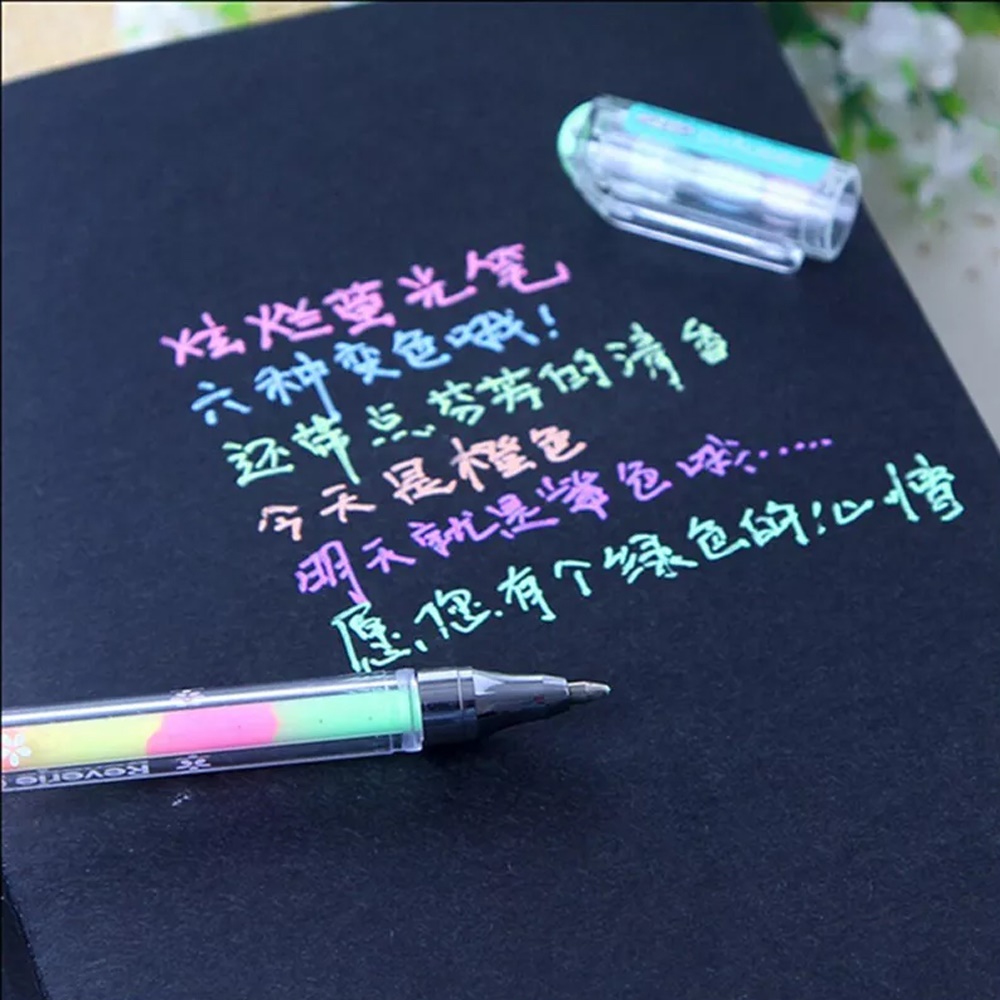 灿烂萤光笔
六种变色哦!
还带点芬芳的清香
今天是橙色
明天就是紫色哦……
愿您有个绿色的心情
Reverie